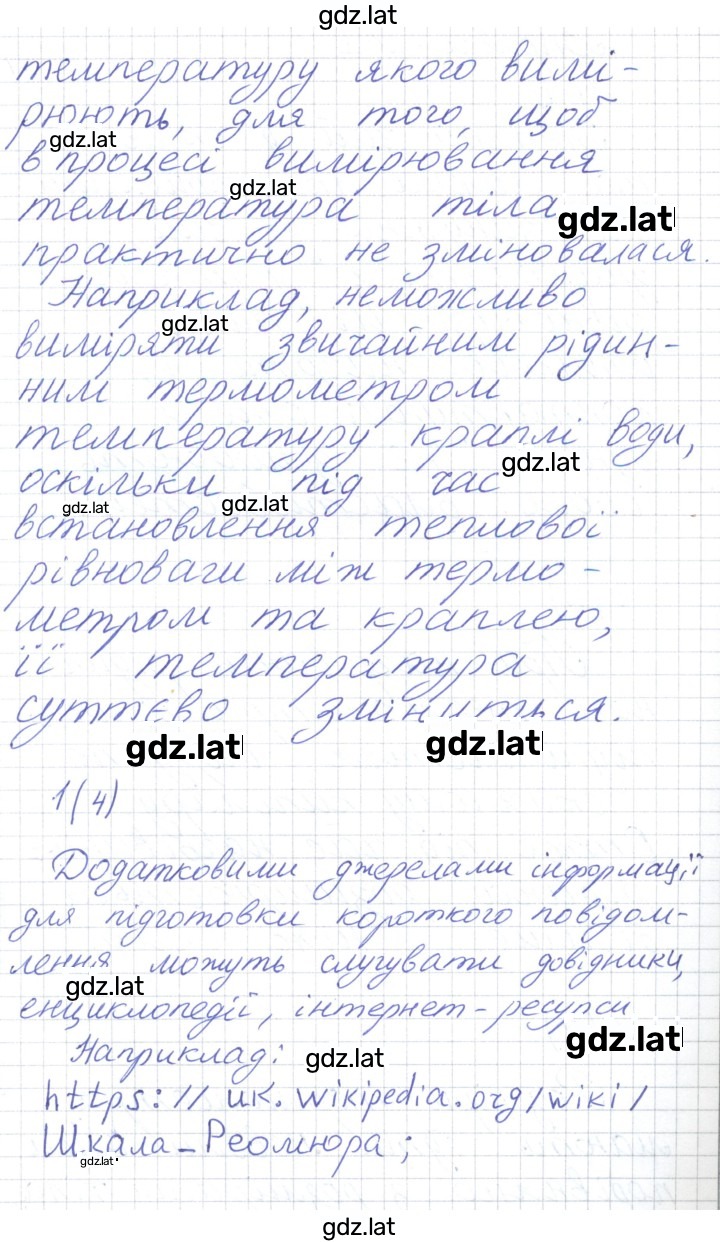 gdz.lat
температуру якого вимі-
рюють, для того, щоб
gdz.lat
в процесі вимірювання
gdz.lat
температура тіла
gdz.lat
практично не зміновалася.
Наприклад, неможливо
gdz.lat
виміряти звичайним рідин-
ним термометром
температуру краплі води,
gdz.lat
оскільки під час
gdz.lat gdz.lat
встановлення теплової
рівноваги між термо-
метром та краплею,
її температура
суттєво зміниться.
gdz.lat gdz.lat
1(4)
Додатковими джерелами інформації
для підготовки короткого повідом-
лення можуть слугувати довідники,
gdz.lat
енциклопедії, інтернет-ресурси
gdz.lat
Наприклад:
gdz.lat
https://uk.wikipedia.org/wiki/
Шкала_Реомюра;
gdz.lat
gdz.lat